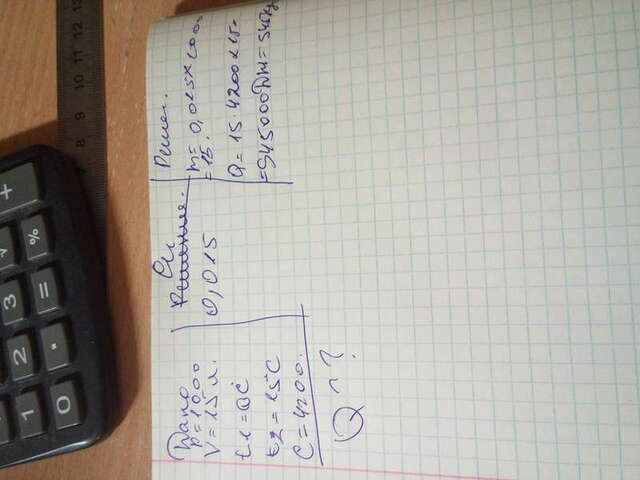 Дано
p=1000
V=15л.
t1=0C
t2=15°C
C=4200.
Q-?
Си
Решения.
0,015
Решен.
m=0,015×1000
=15.
Q=15·4200×15=
=945000Дж=945кДж
7 8 9 10 11 12 13
0 1 2 3 √ + . = %